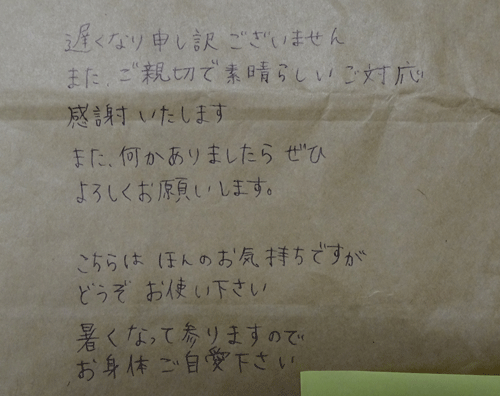 遅くなり申し訳ございません
また、ご親切で素晴らしいご対応
感謝いたします
また、何かありましたら ぜひ
よろしくお願いします。
こちらは ほんのお気持ちですが
どうぞ お使い下さい
暑くなって参りますので
お身体ご自愛下さい